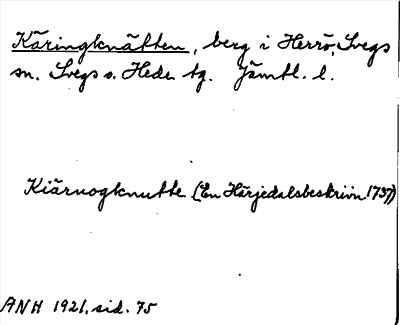 Käringknätten, berg i Herrö, Svegs
sn. Svegs o. Hede tg. Jämtl. l.
Kiärnogknutte (En Härjedalsbeskrivn 1737)
ANH 1921. sid. 75